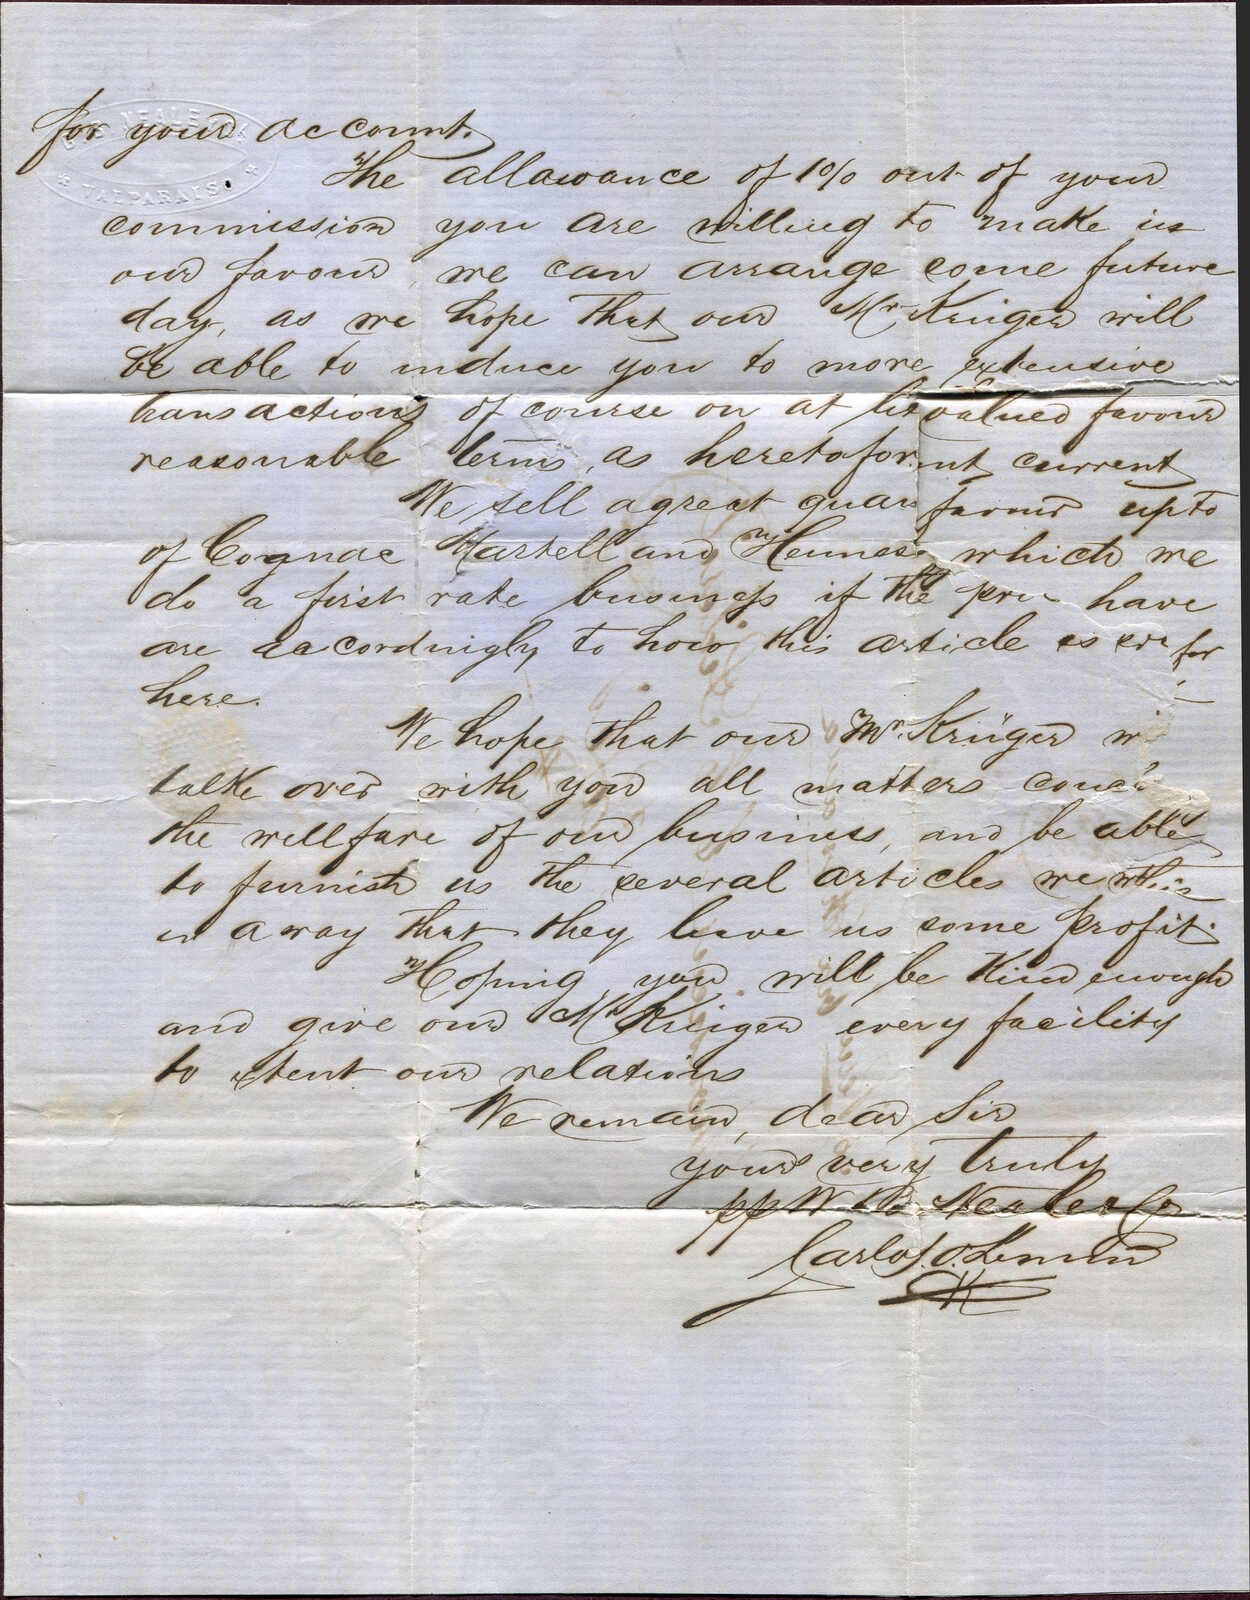 for your account.
The allowance of 1% out of your
commission you are willing to make in
our favour, we can arrange some future
day, as we hope that our Mr. Krüger will
be able to induce you to more extensive
transactions of course on at li valued favour
reasonable terms, as heretofor nt current
We sell a great quan favour up to
of Cognac Martell and Hennes which we
do a first rate business if the pri have
are accordingly to how this article is for
here.
We hope that our Mr. Krüger wi
talke over with you all matters conc
the wellfare of our business, and be able
to furnish us the several articles we
in a way that they leave us some profit.
Hoping you will be kind enough
and give our Mr. Krüger every facility
to extent our relations
We remain, dear Sir
your very truly
pp W. Neale & Co
Carlos
VALPARAISO